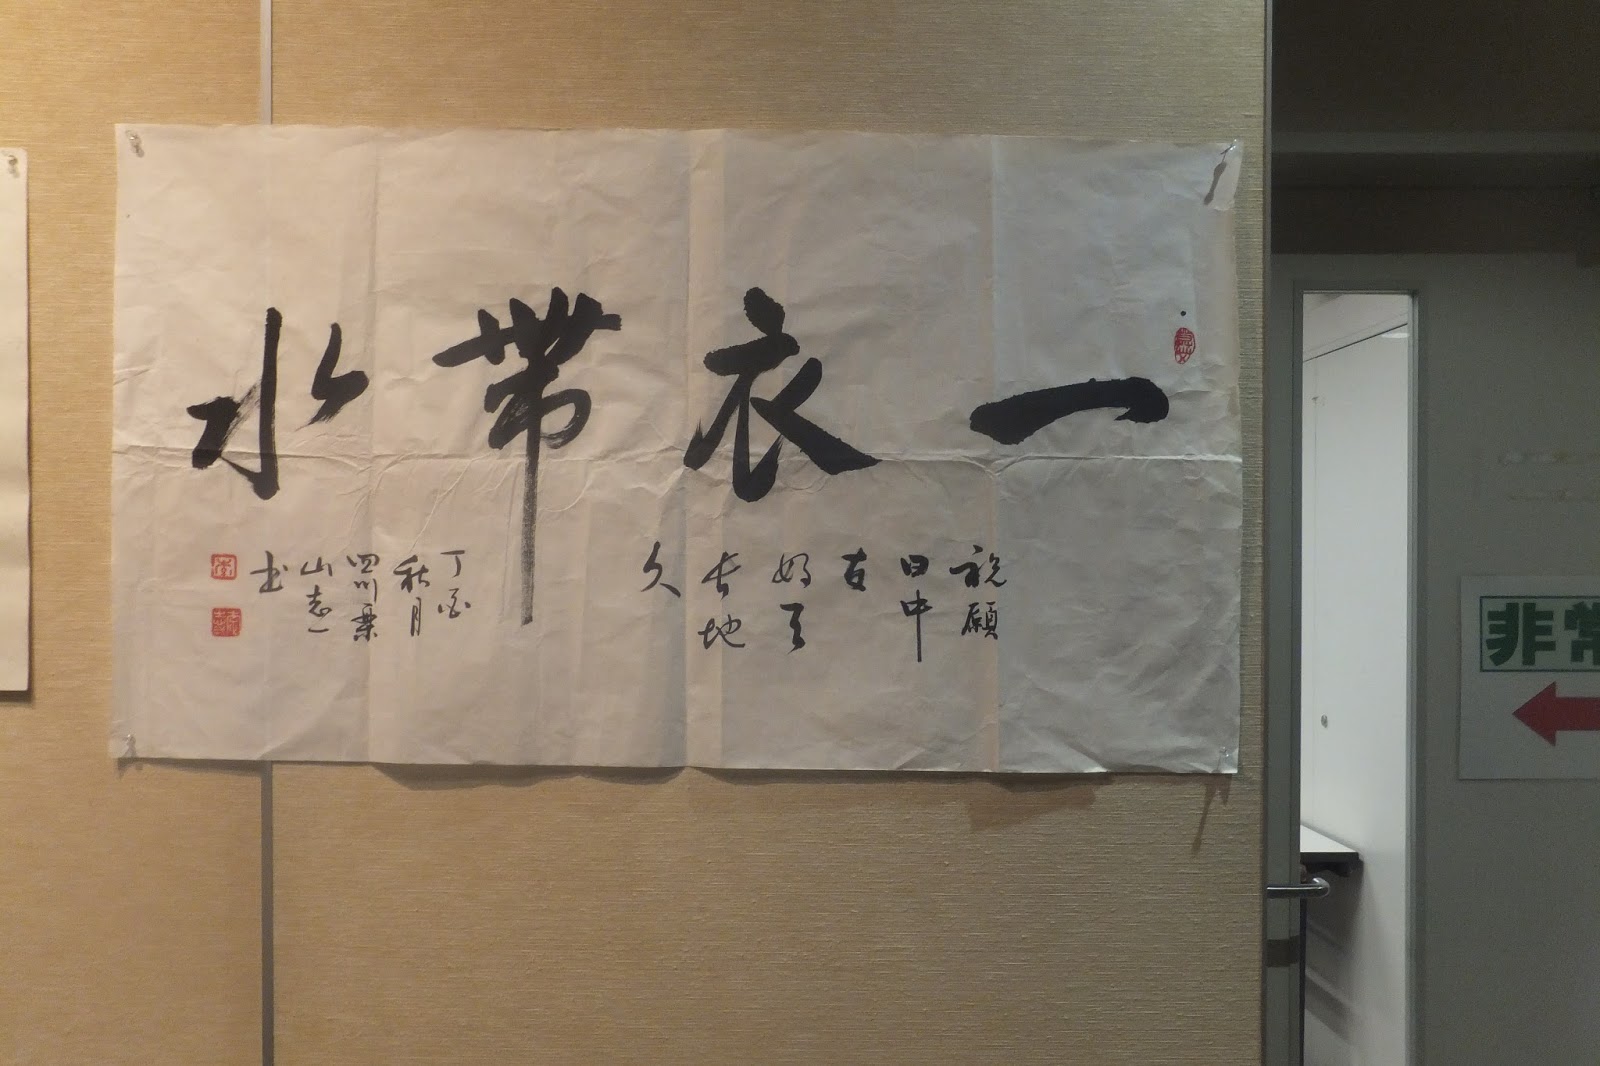 一衣帯水
祝願
日中
友
好天
長地
久
丁酉
秋月
四川栗
山志一
书
非常